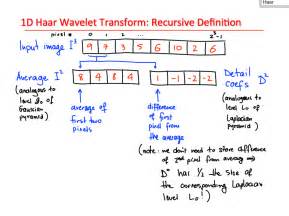 Haar
1D Haar Wavelet Transform: Recursive Definition
pixel # 0 1 2 ... 2³-1
Input image I³ 9 7 3 5 6 10 2 6
Average I² 8 4 8 4
1 -1 -2 -2 Detail coefs D²
(analogous to level L₀ of Gaussian pyramid)
average of first two pixels
difference of first pixel from the average
(analogous to level L₀ of Laplacian pyramid)
(note: we don't need to store difference
of 2nd pixel from average
D² has ½ the size of
the corresponding Laplacian
level L₀!